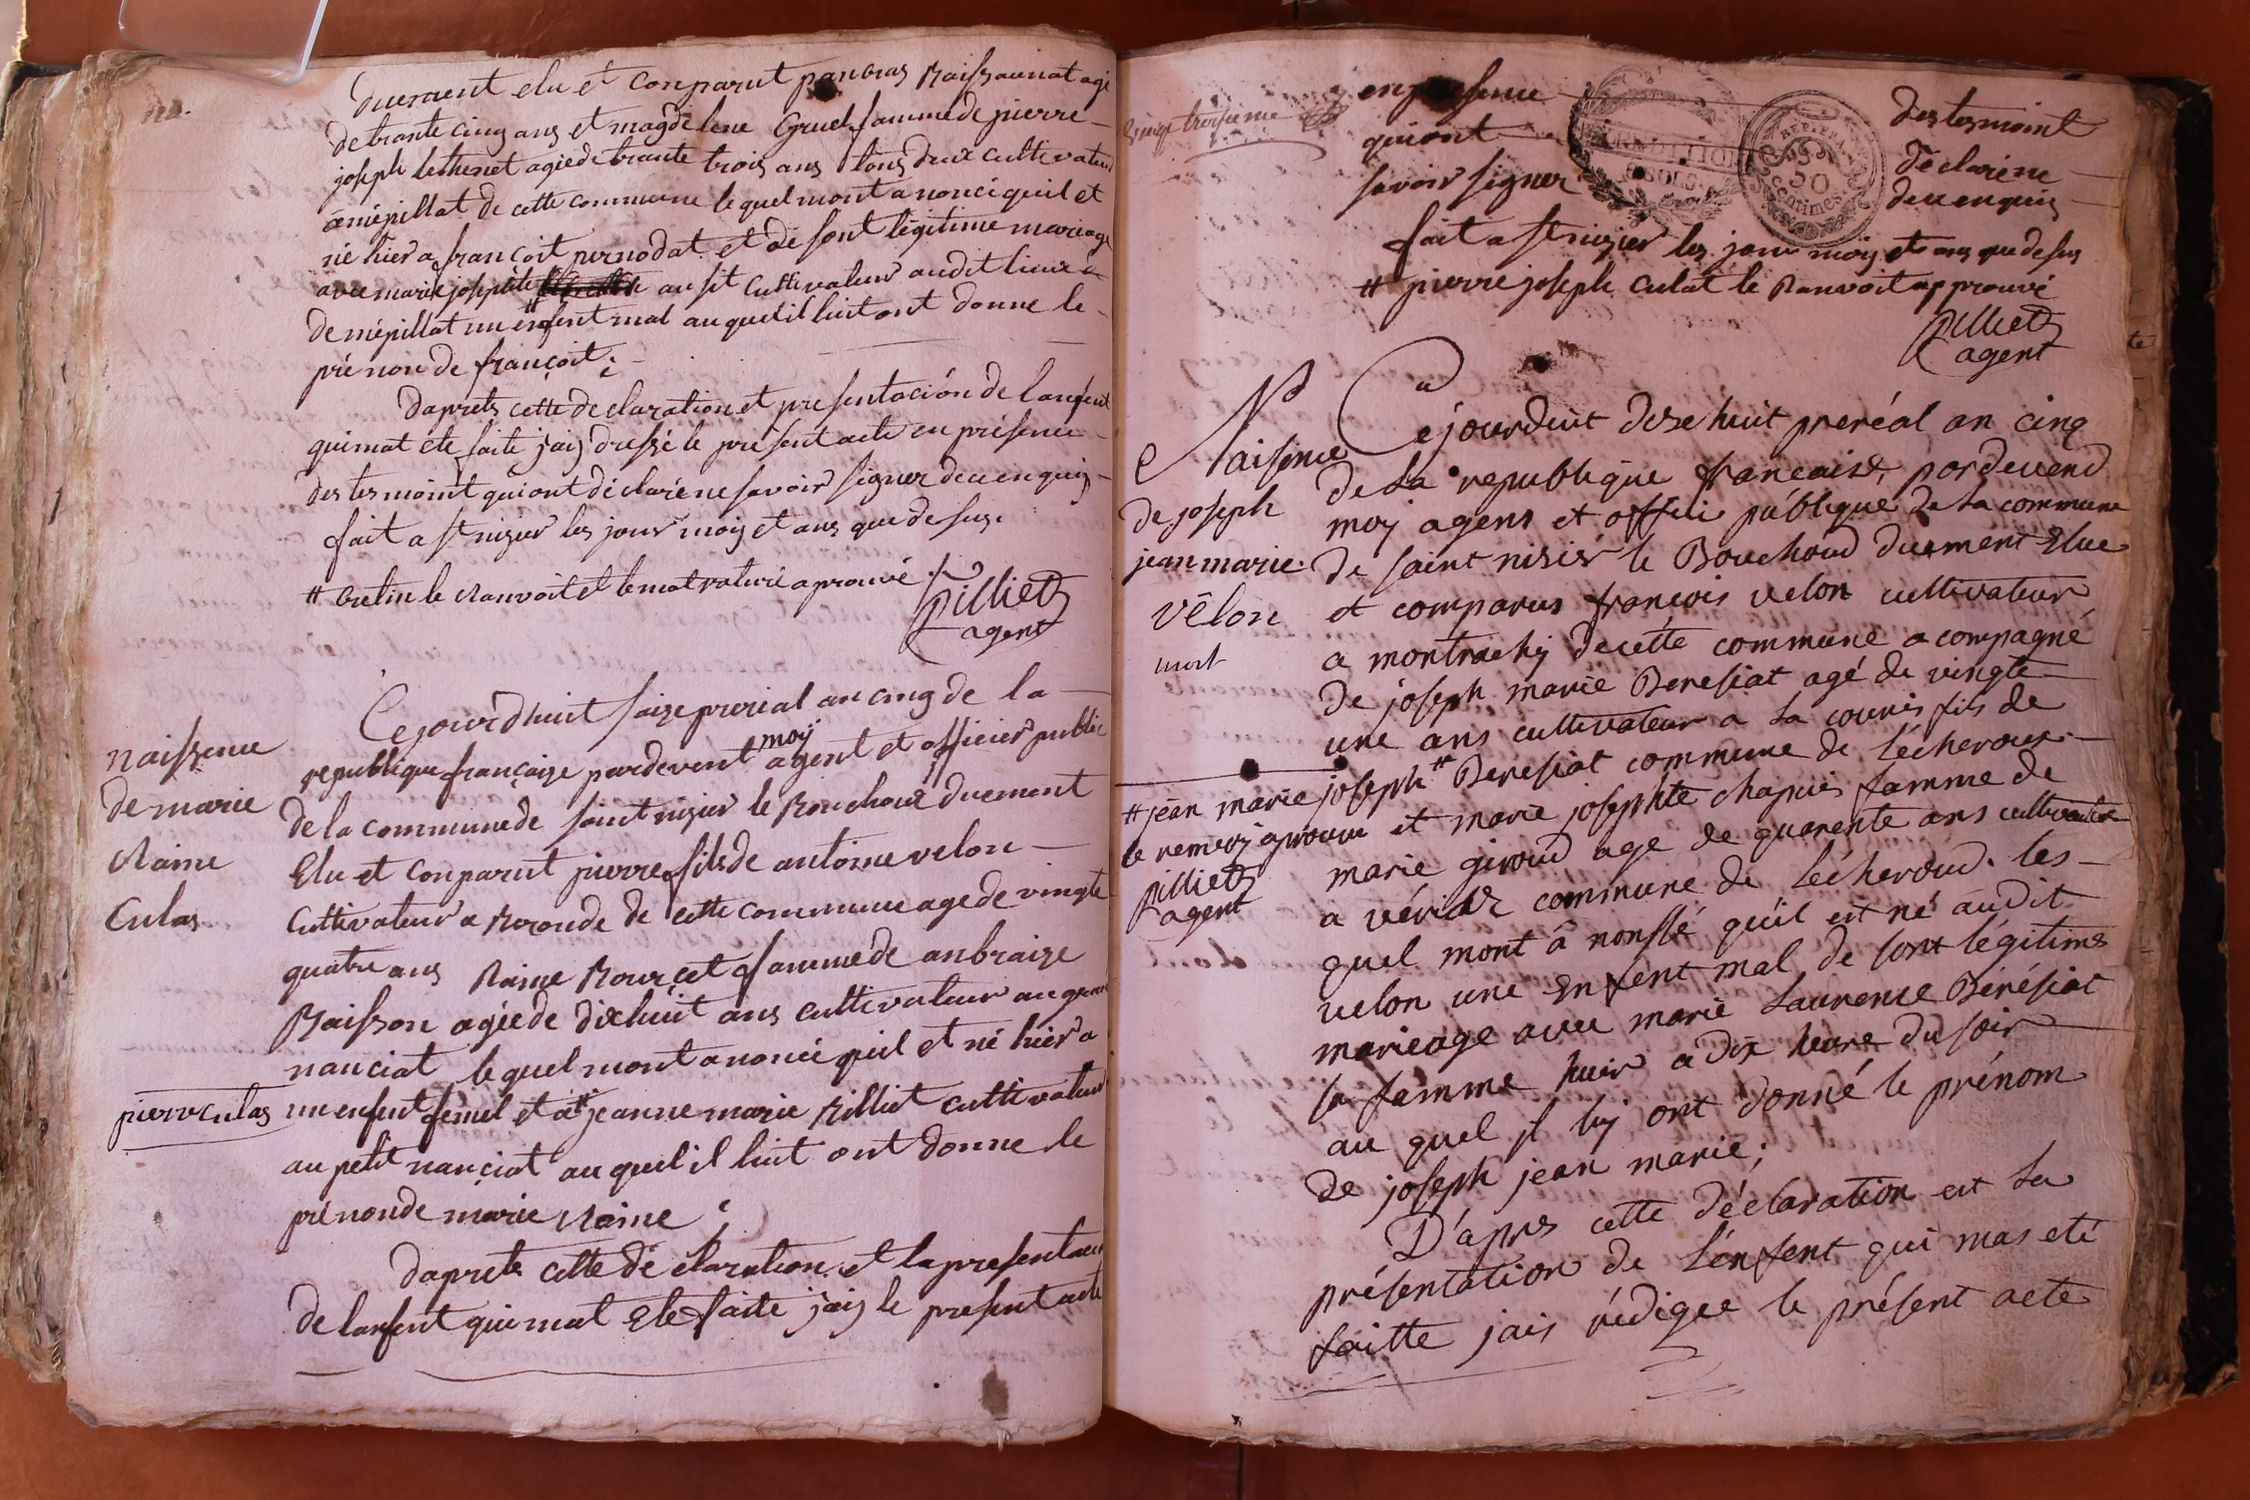 duement elu et conparut pancras Raissounat agé
de trante cinq ans et magdelene Gruel famme de pierre
joseph lethenet agiede trante trois ans tous deux cultivateur
a mépillat de cette commune lequel mont a noncé quil et
né hier a françoit pernodat et de sont légitime mariage
avec marie josephte # au sit cultivateur audit lieux
de mépillat un enfent mal auquel il luit ont donne le
prénon de françoit ;
daprets cette declaration et presentacion de lanfent
qui mat ete faite jaij dressé le present acte en présence
des tesmoint qui ont déclaréne savoir signer dece enquis
fait a st nizier les jour moij et ans que desus.
# Crelin le Ranvoit et le mot raturé aprouvé
Pilliet
agent
naissence
de marie
Raine
Culas
pierre culas
Cejourdhuit saize prerial an cinq de la
republique françaize pardevent moij agent et officier public
de la commune de saint nizier le Bouchoux duement
Elu et conparut pierre fils de antoine velon
Cultivateur a Boronde de cette commune age de vingte
quatre ans Raine Bourcet famme de anbraize
Raisson agéede dixhuit ans cultivateur au grand
nanciat lequel mont anoncé quil et né hier a
un enfent femel et a # jeanne marie Rilliet cultivateur
au petit nanciat auquel il luit ont donne le
prénonde marie Raine ;
daprets cette déclaration et la presentacion
de lanfent qui mat Ete faite jaij le present acte
vingt troisieme
en presence des tesmoint
qui ont déclaréne
savoir signer dece enquis
fait a st nizier les jour moij et ans que desus
# pierre joseph culat le Ranvoit approuvé
Pilliet
agent
Naisence
de joseph
jean marie
vélon
mort
Cejourduit dize huit preréal an cinq
de la republique francaise, pordevend
moij agens et offici publique de la commune
de saint nisiér le Bouchoud duement Elue
et comparus francois velon cultivateur
a montrachij decette commune a compagné
de joseph marie Beresiat agé de vingte
une ans cultivateur a la couris fils de
joseph # Beresiat commune de lécheroux
# jean marie
le renvoij aprouve
Pilliet
agent
et marie josephte chapuis famme de
marie giroud age de quarente ans cultivateur
a vériat commune de lécheroud. les
quel mont a nonssé qu'il est né audit
velon une enfent mal de sont légitime
marieage avec marie Laurence Bérésiat
sa famme huir a dix heure du soir
au quel il luij ont donné le prénom
de joseph jean marie ;
D'apres cette déclaration est la
présentation de l'enfent qui mas eté
faitte jais rédigee le présent acte